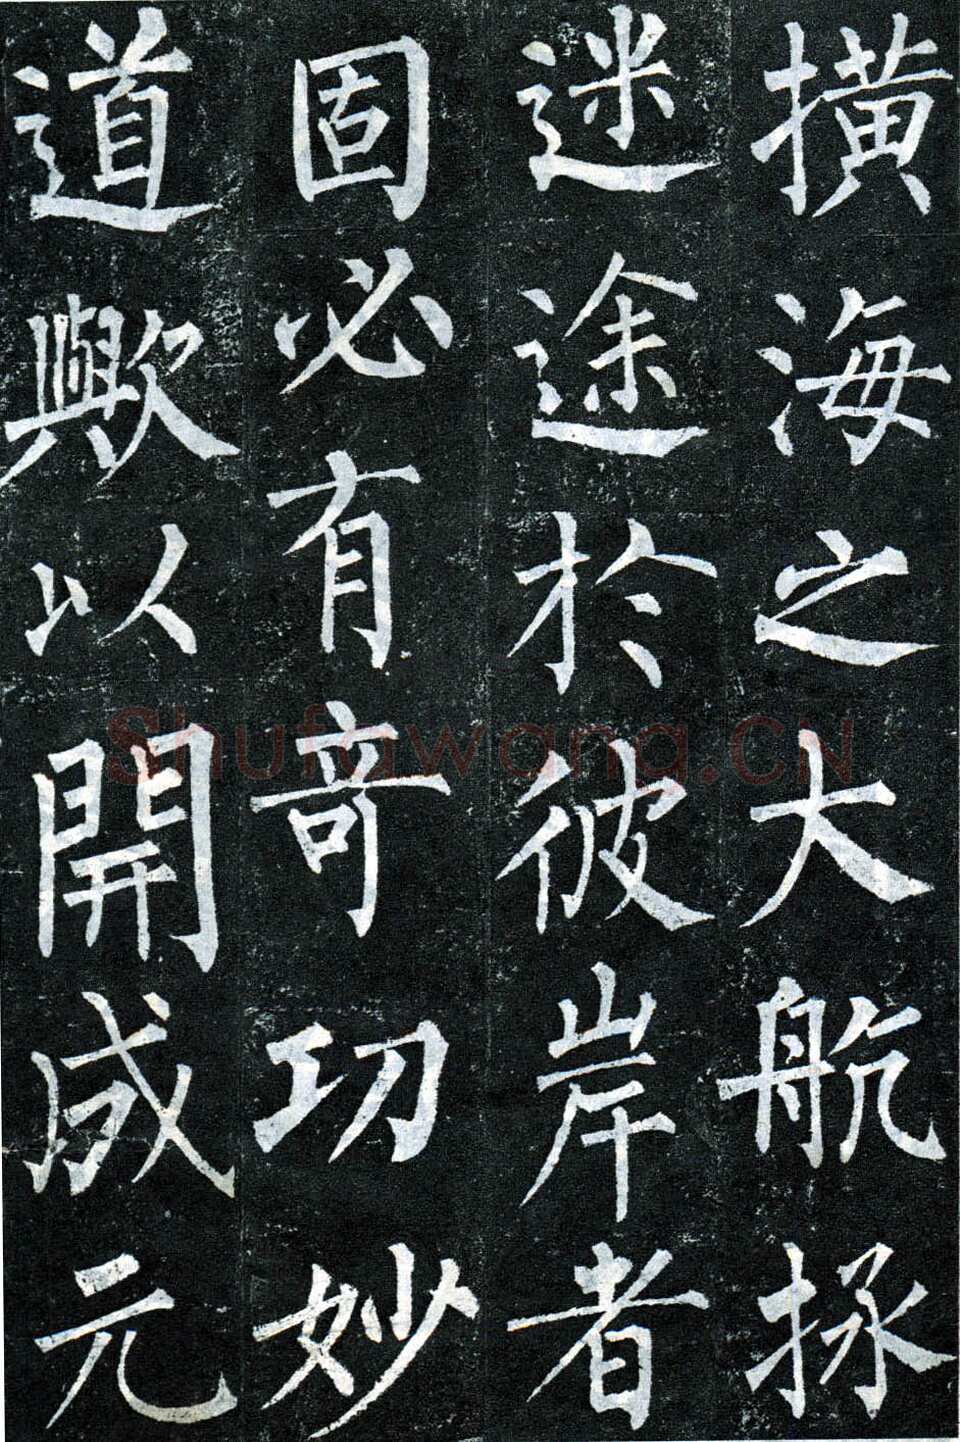 橫海之大航拯
迷途於彼岸者
固必有奇功妙
道歟以開成元
Shufawang.CN